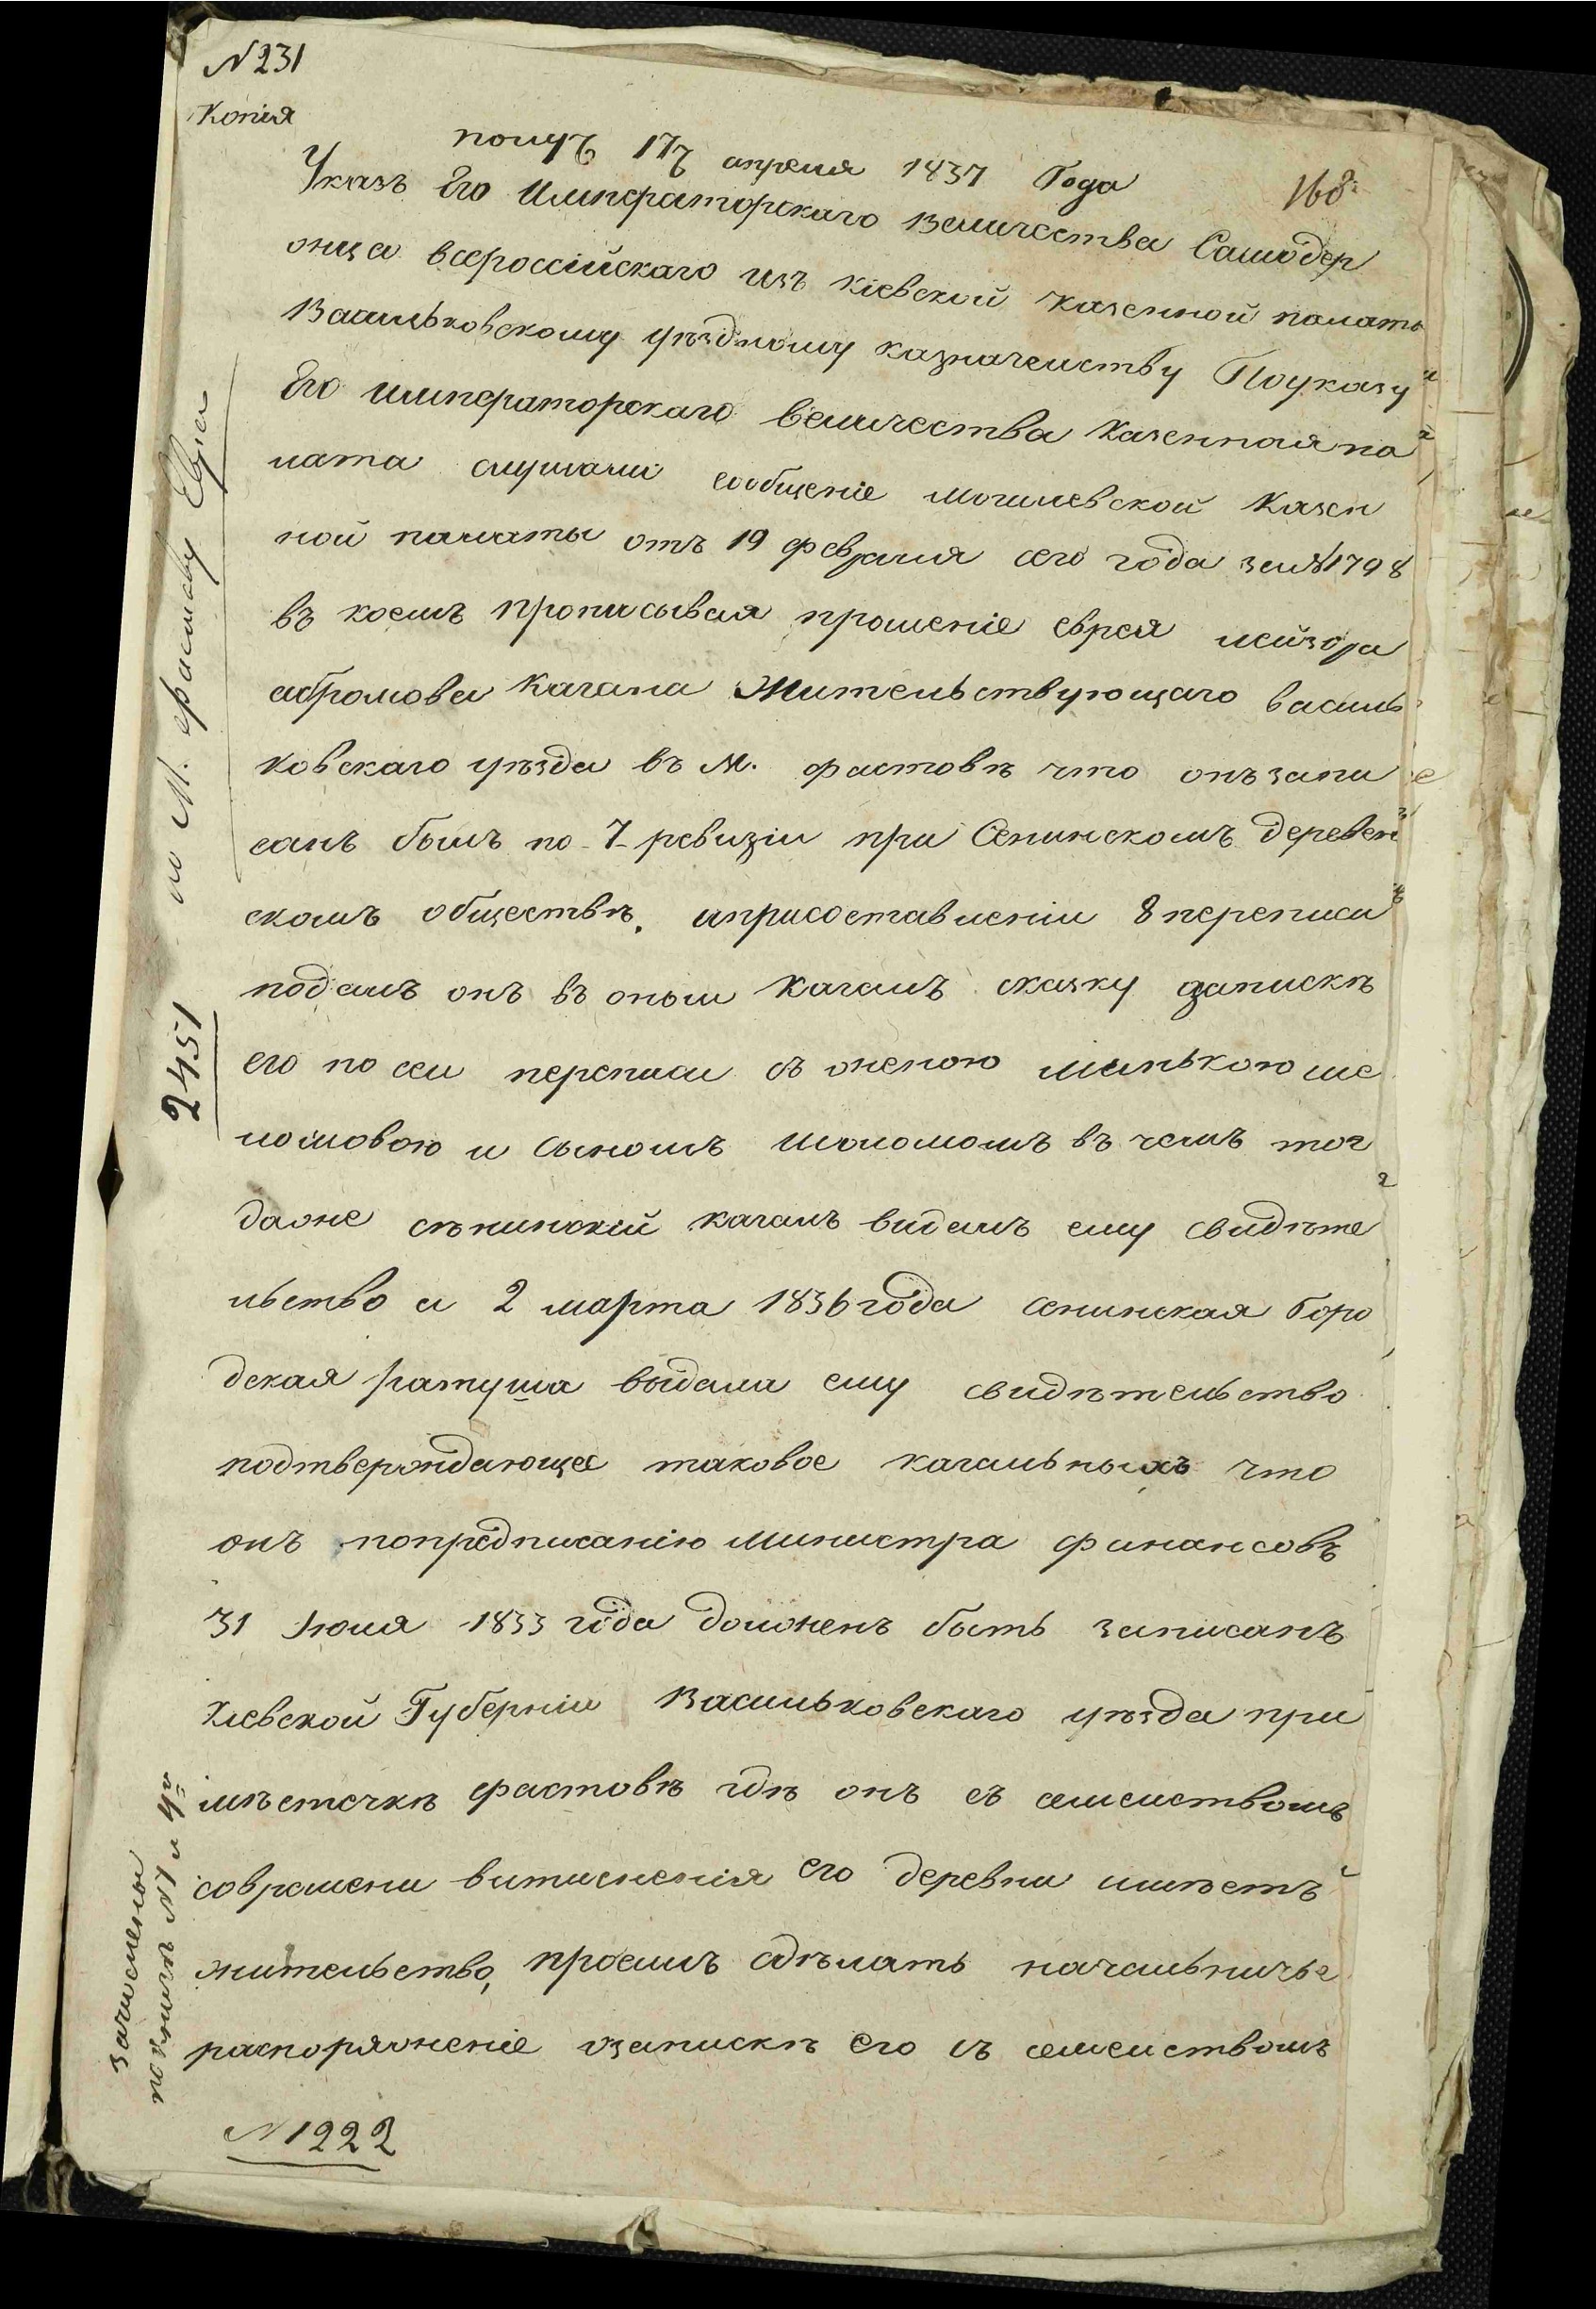 N 231
Копія
получ 17 апреля 1837 Года
168
Указъ Его Императорскаго Величества Самодер
жца всероссійскаго изъ кіевской казенной палаты
Васильковскому уѣздному казначеиству Поуказу
Его императорскаго величества Казенная па
лата слушали сообщеніе могилевской Казен
ной палаты отъ 19 февраля сего года за № 1798
въ коемъ прописывая прошеніе еврея лейзора
абрамова Кагана Жительствующаго василь
ковскаго уѣзда въ М. фастовѣ что онъ запи
санъ былъ по 7 ревизіи при Сенинскомъ деревен
скомъ обществѣ, априсоставленіи 8 переписи
подалъ онъ въ оныи Кагалъ сказку озапискѣ
его по сеи переписи съ женою минькою ше
ломовою и сыномъ шоломомъ въ чемъ тог
даже сѣнинскій кагалъ видалъ ему свидѣте
льство а 2 марта 1836 года сенинская Горо
дская ратуша выдала ему свидѣтельство
подтверждающее таковое кагальныхъ что
онъ попредписанію министра финансовъ
31 Июля 1833 года долженъ быть записанъ
Кіевской Губерніи Васильковскаго уѣзда при
мѣстечкѣ фастовѣ гдѣ онъ съ семеиствомъ
современи витисненія его деревни имѣетъ
жительство, просилъ сдѣлать начальниче
распоряженіе озапискѣ его съ семеиствомъ
N 1222
по М. фастову Евреи
2451
зачислены
по книгѣ №1 и 4й